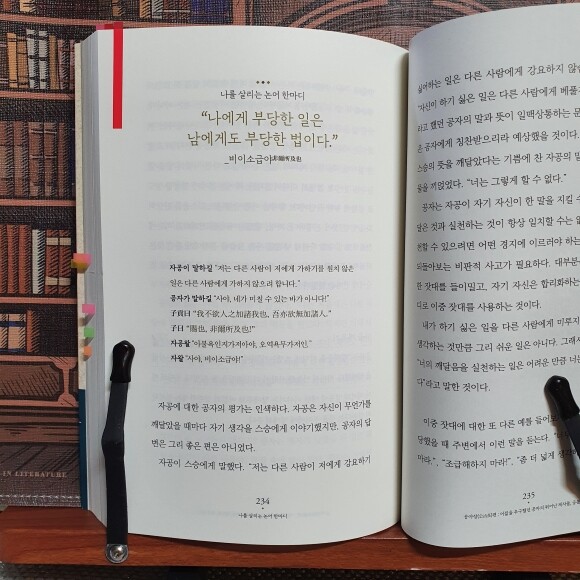 나를 살리는 논어 한마디
“나에게 부당한 일은
남에게도 부당한 법이다.”
_비이소급야非爾所及也
자공이 말하길 “저는 다른 사람이 저에게 가하기를 원치 않은
일은 다른 사람에게 가하지 않으려 합니다.”
공자가 말하길 “사야, 네가 미칠 수 있는 바가 아니다!”
子貢曰 “我不欲人之加諸我也, 吾亦欲無加諸人.”
子曰 “賜也, 非爾所及也!”
자공왈 “아불욕인지가저아야, 오역욕무가저인.”
자왈 “사야, 비이소급야!”
자공에 대한 공자의 평가는 인색하다. 자공은 자신이 무언가를
깨달았을 때마다 자기 생각을 스승에게 이야기했지만, 공자의 답
변은 그리 좋은 편은 아니었다.
자공이 스승에게 말했다. “저는 다른 사람이 저에게 강요하기
234
나를 살리는 논어 한마디
싫어하는 일은 다른 사람에게 강요하지 않
“자신이 하기 싫은 일은 다른 사람에게 베풀
라고 했던 공자의 말과 뜻이 일맥상통하는
은 공자에게 칭찬받으리라 예상했을 것이다.
스승의 뜻을 깨달았다는 기쁨에 찬 자공의
을 끼얹었다. “너는 그렇게 할 수 없다.”
공자는 자공이 자기 자신이 한 말을 지킬 수
닫은 것과 실천하는 것이 항상 일치할 수는
천할 수 있으려면 어떤 경지에 이르러야 하는
되돌아보는 비판적 사고가 필요하다. 대부분
한 잣대를 들이밀고, 자기 자신은 합리화하는
로 이중 잣대를 사용하는 것이다.
내가 하기 싫은 일을 다른 사람에게 미루지
생각하는 것만큼 그리 쉬운 일은 아니다. 그래서
“너의 깨달음을 실천하는 일은 어려운 만큼 너는
다”라고 말한 것이다.
이중 잣대에 대한 또 다른 예를 들어보
당했을 때 주변에서 이런 말을 듣는다.
마라.”, “조급해하지 마라!”, “좀 더 넓게 생각
235
IN LITERATURE